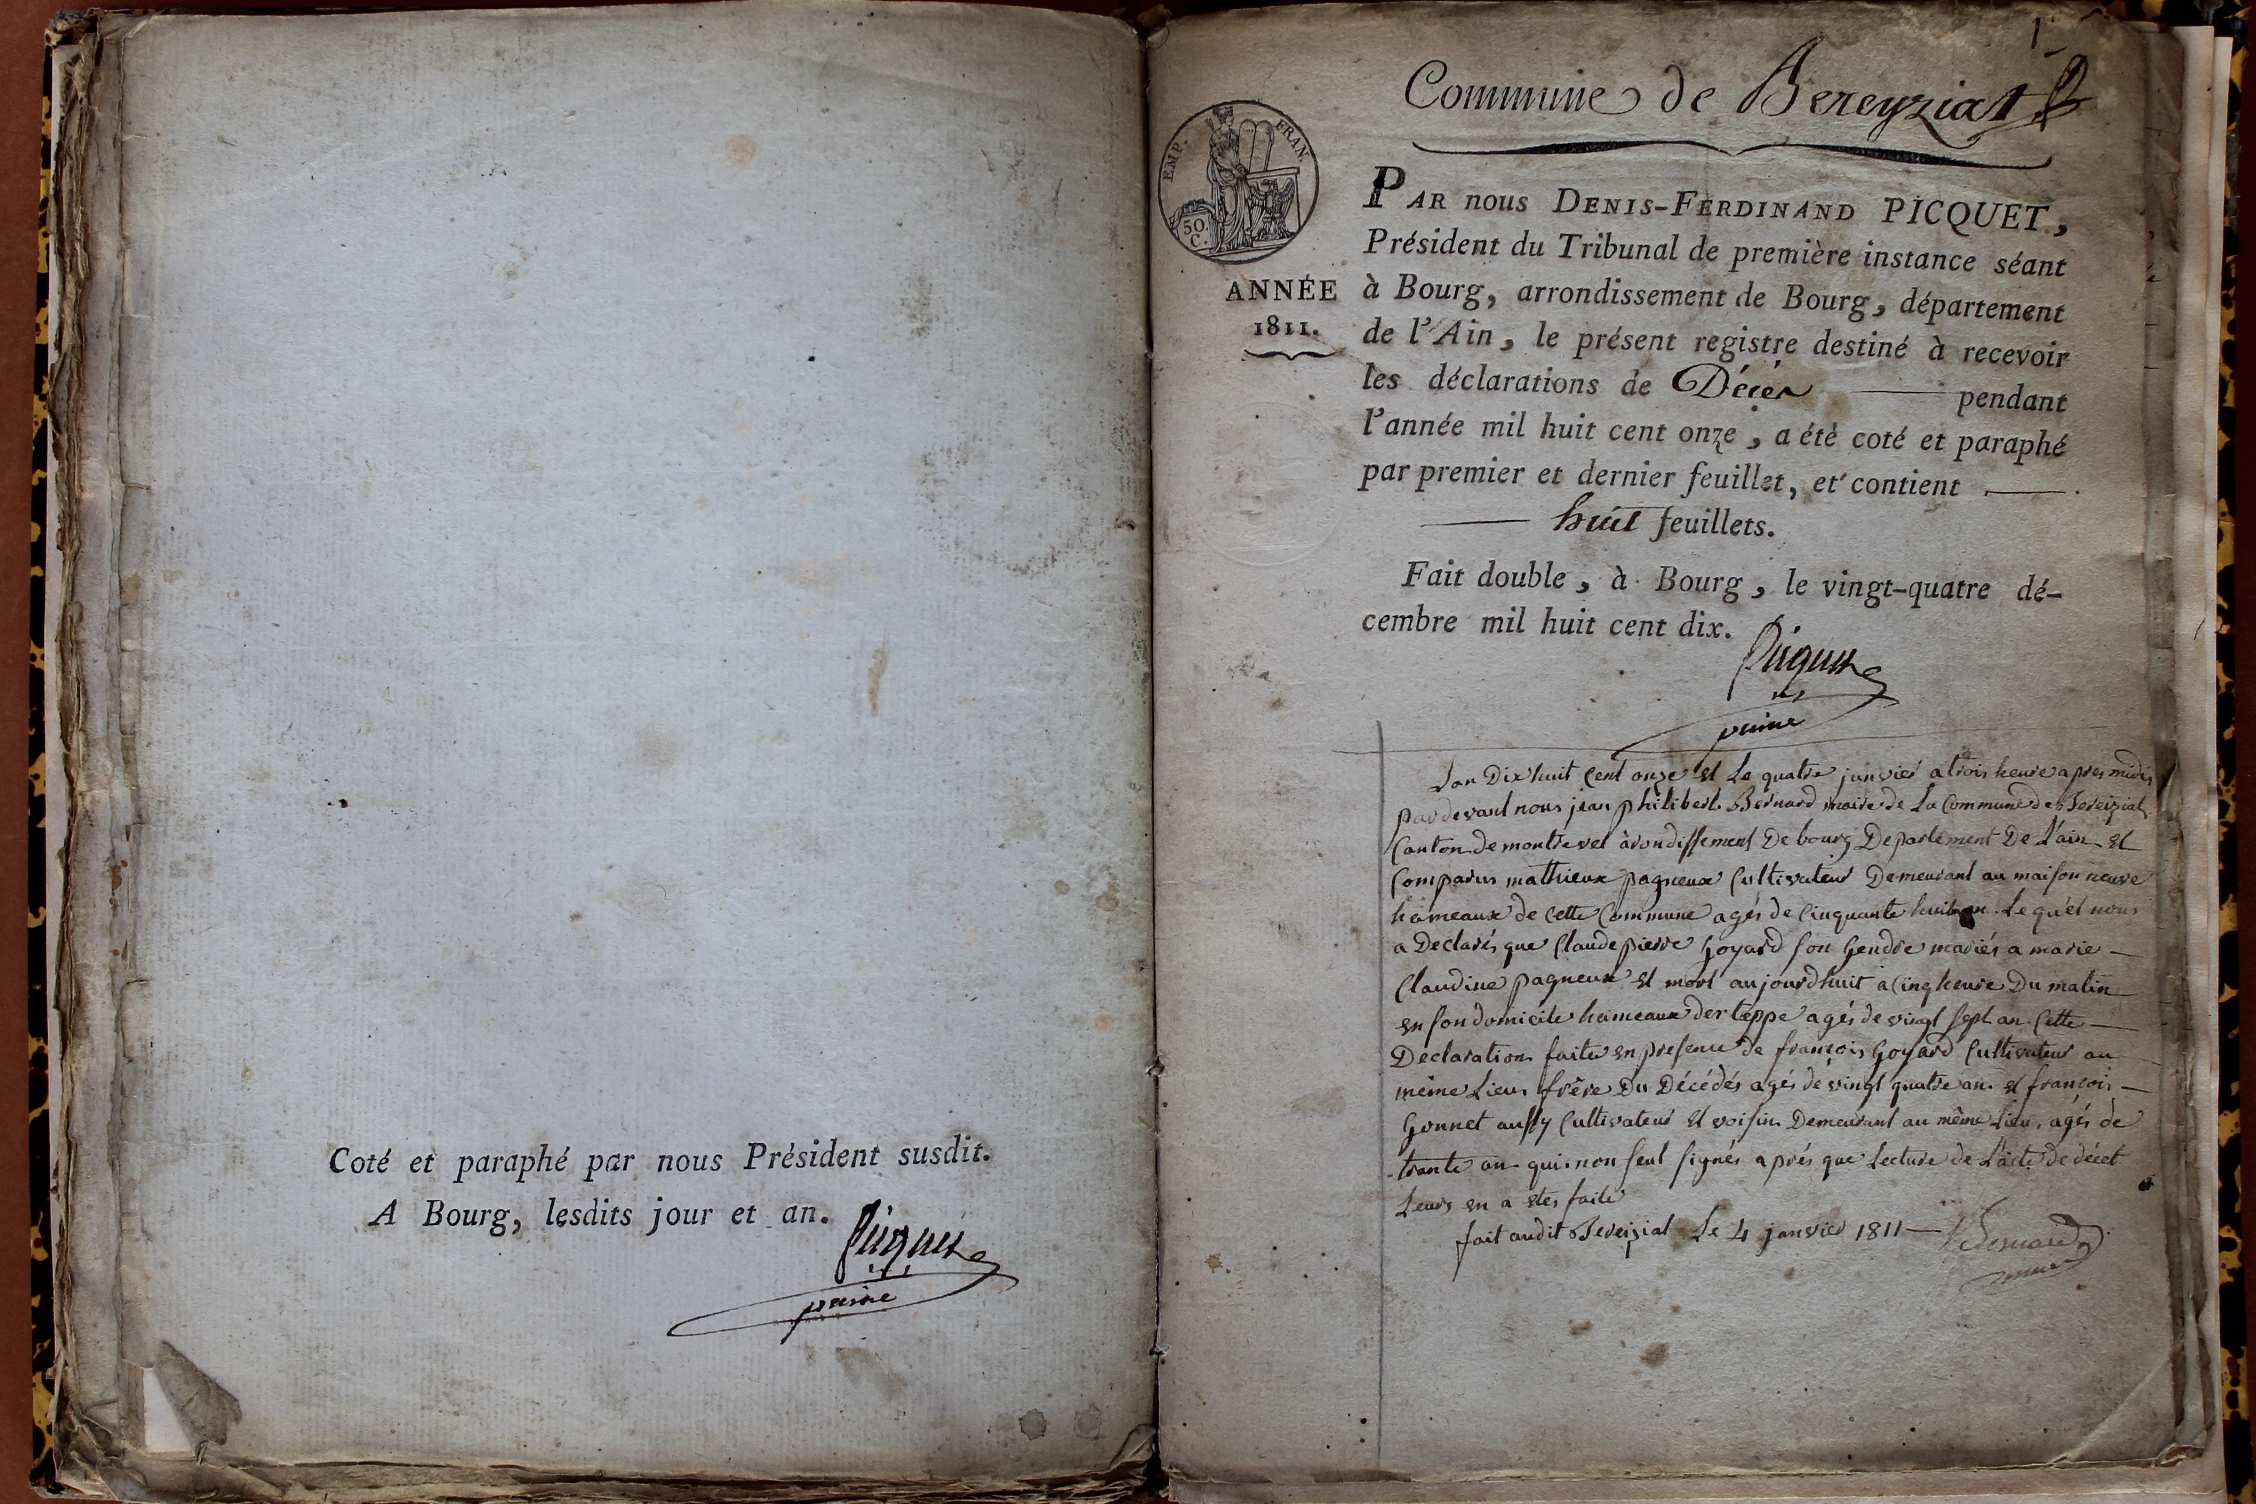 Coté et paraphé par nous Président susdit.
A Bourg, lesdits jour et an.
Picquet
1
Commune de Bereyziat
EMP. FRAN.
50 C.
ANNÉE
1811.
PAR nous DENIS-FERDINAND PICQUET,
Président du Tribunal de première instance séant
à Bourg, arrondissement de Bourg, département
de l'Ain, le présent registre destiné à recevoir
les déclarations de Décès pendant
l'année mil huit cent onze, a été coté et paraphé
par premier et dernier feuillet, et contient
huit feuillets.
Fait double, à Bourg, le vingt-quatre dé-
cembre mil huit cent dix.
Picquet
Lan Dix huit Cent onze et Le quatre janvier a trois heure apres midis
pardevant nous jean philibert Bernard maire de La Commune de Bereizial
Canton de montrevel arondissement De bourg Departement De L'ain et
Comparus mathieux pagneux Cultivateur Demeurant au maison neuve
hameaux de Cette Commune agés de Cinquante huit an. Le quel nous
a Declarés que Claude pierre Goyard son Gendre mariés a marie
Claudine pagneux et mort aujourdhuit a Cinq heure Du matin
en son domicile hameaux der teppe agés de vingt sept an Cette
Declaration faite en presence de francois Goyard Cultivateur au
même Lieu frère Du Décédés agés de vingt quatre an et francois
Gonnet aussy Cultivateur et voisin Demeurant au même Lieu, agés de
trante an qui non seut signés aprés que Lecture de L'acte de décet
Leurs en a etés faite
fait audit Bereizial Le 4 janvier 1811
Bernard
maire